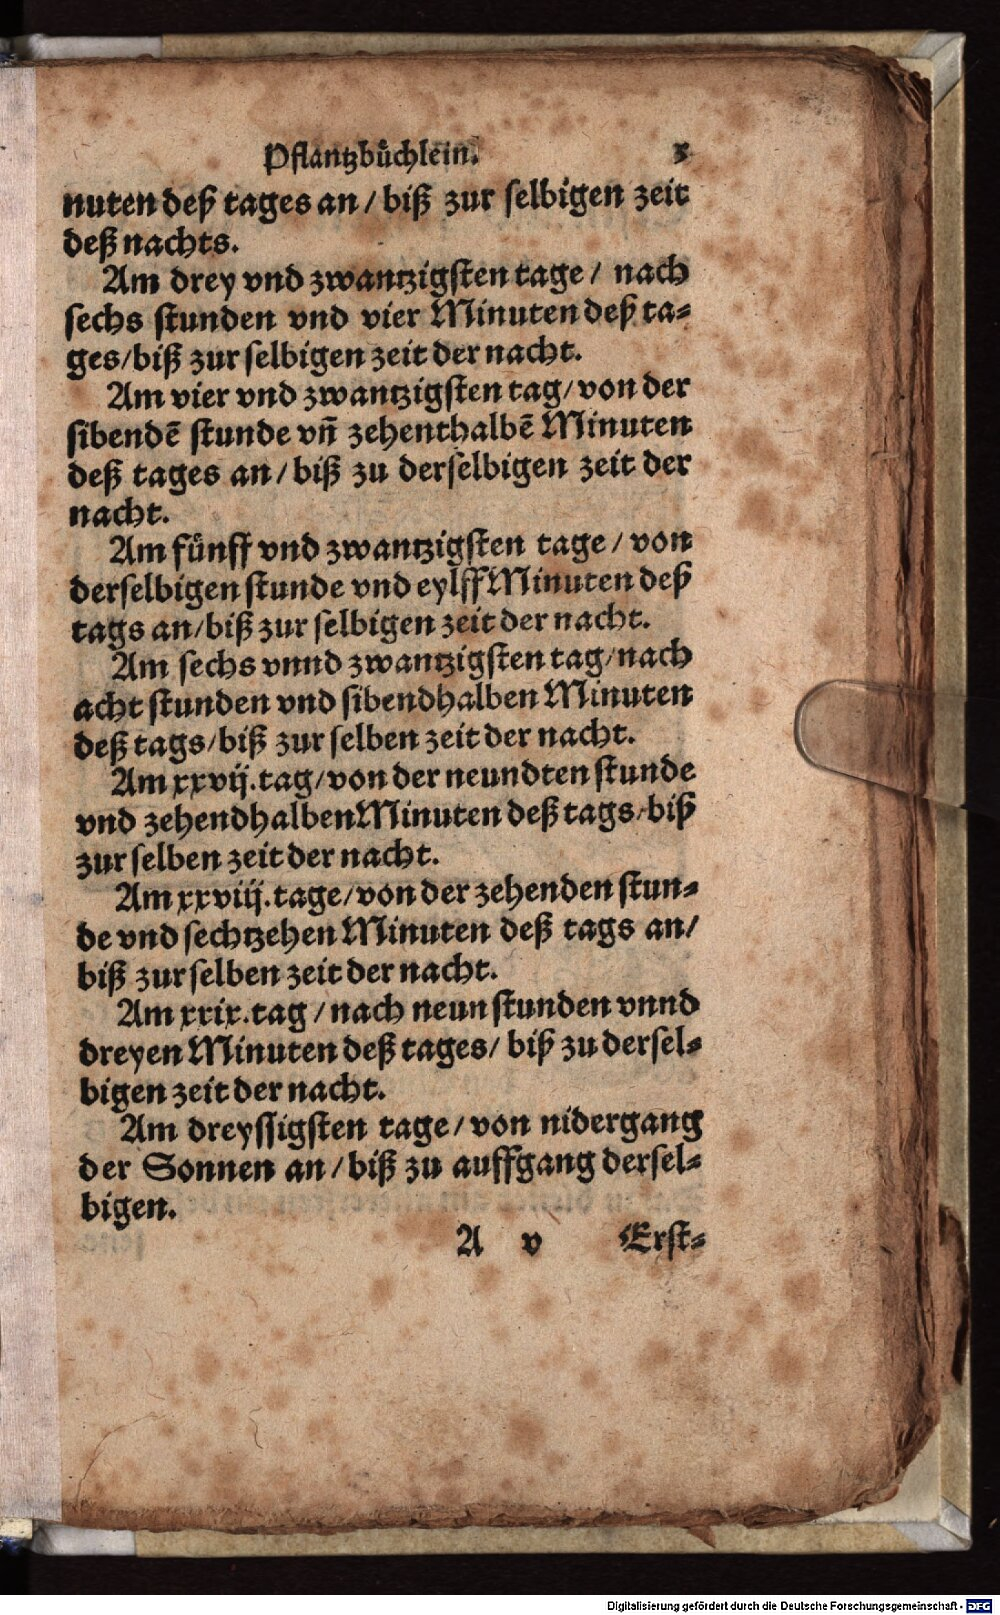 Pflantzbuͤchlein. 5
nuten deß tages an / biß zur selbigen zeit
deß nachts.
Am drey vnd zwantzigsten tage / nach
sechs stunden vnd vier Minuten deß ta⸗
ges / biß zur selbigen zeit der nacht.
Am vier vnd zwantzigsten tag / von der
sibendē stunde vn̄ zehenthalbē Minuten
deß tages an / biß zu derselbigen zeit der
nacht.
Am fuͤnff vnd zwantzigsten tage / von
derselbigen stunde vnd eylff Minuten deß
tags an / biß zur selbigen zeit der nacht.
Am sechs vnnd zwantzigsten tag / nach
acht stunden vnd sibendhalben Minuten
deß tags / biß zur selben zeit der nacht.
Am xxvij. tag / von der neundten stunde
vnd zehendhalben Minuten deß tags / biß
zur selben zeit der nacht.
Am xxviij. tage / von der zehenden stun⸗
de vnd sechtzehen Minuten deß tags an /
biß zur selben zeit der nacht.
Am xxix. tag / nach neun stunden vnnd
dreyen Minuten deß tages / biß zu dersel⸗
bigen zeit der nacht.
Am dreyssigsten tage / von nidergang
der Sonnen an / biß zu auffgang dersel⸗
bigen.
A v Erst⸗
Digitalisierung gefördert durch die Deutsche Forschungsgemeinschaft - DFG